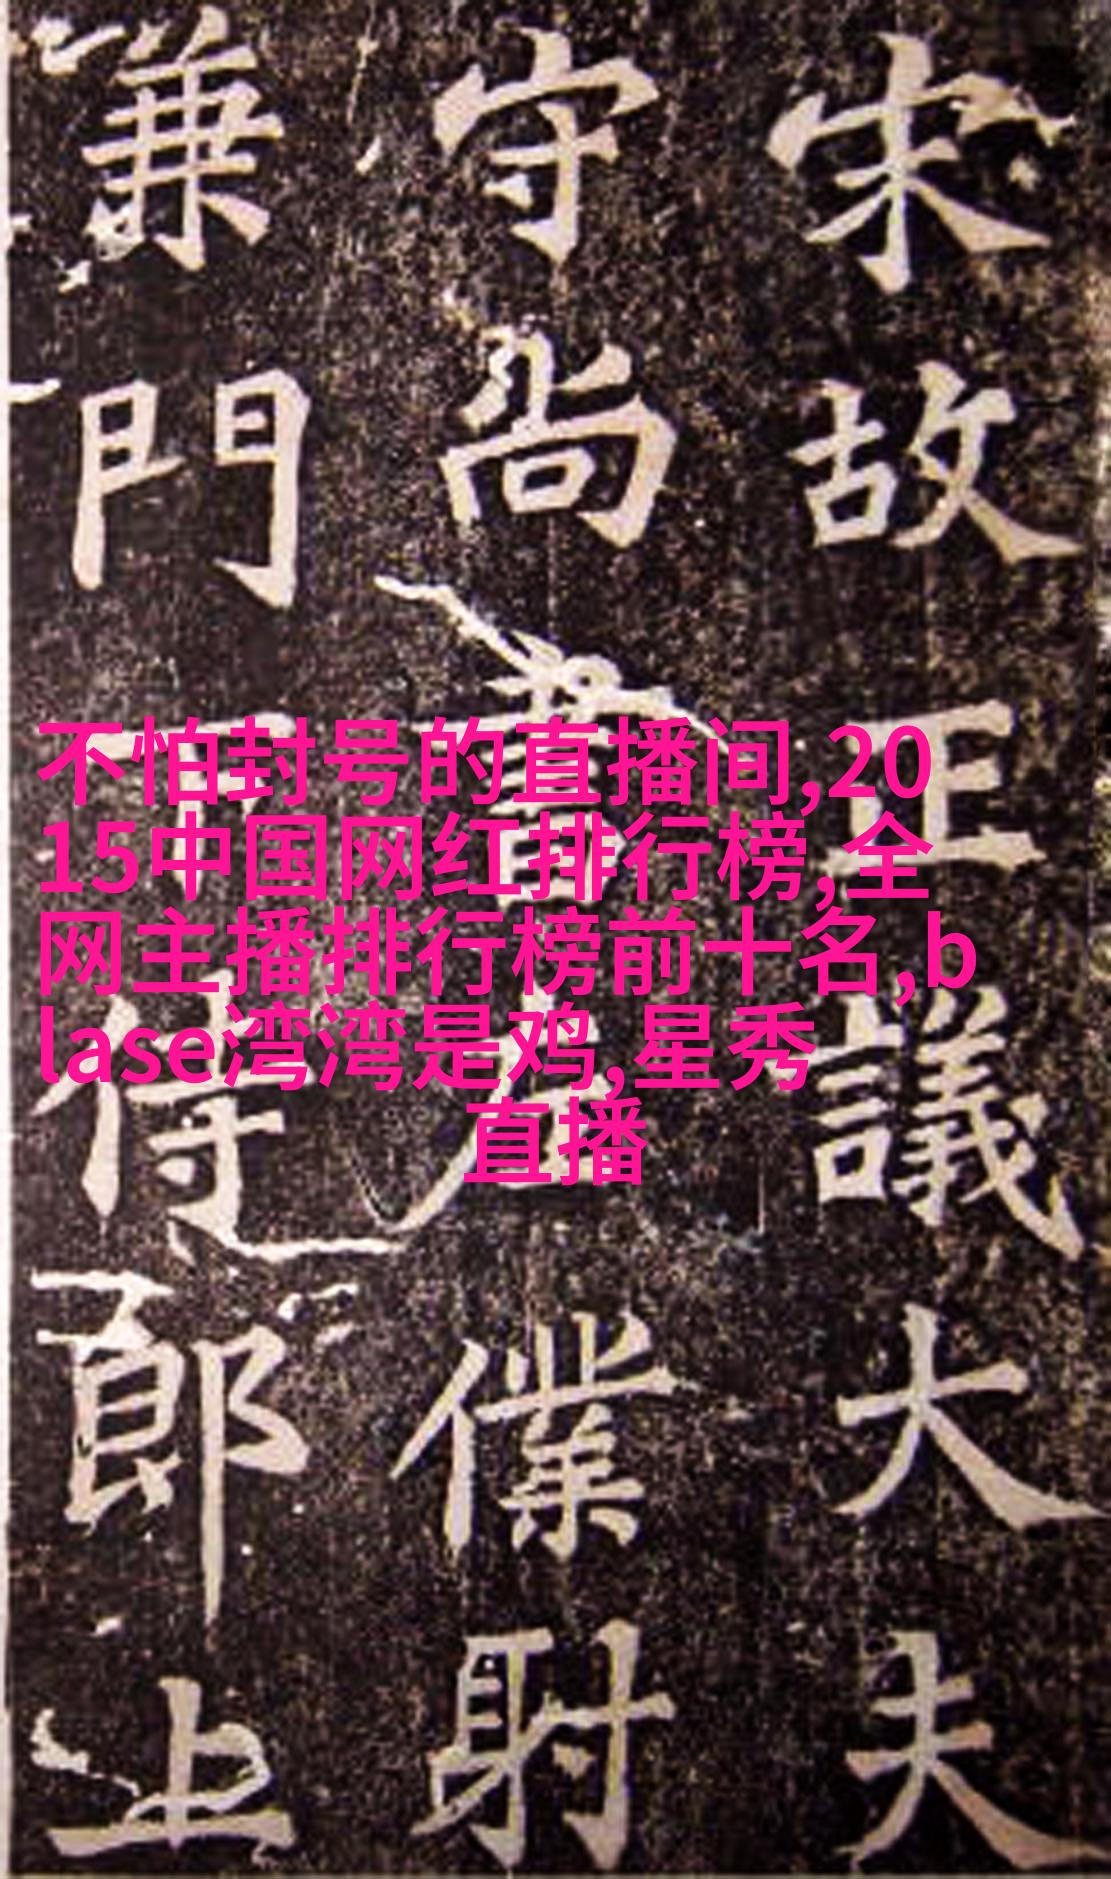 宋故正議大夫
守尚書左僕射
兼門下侍郎上
不怕封号的直播间,20
15中国网红排行榜,全
网主播排行榜前十名,b
lase湾湾是鸡,星秀
直播